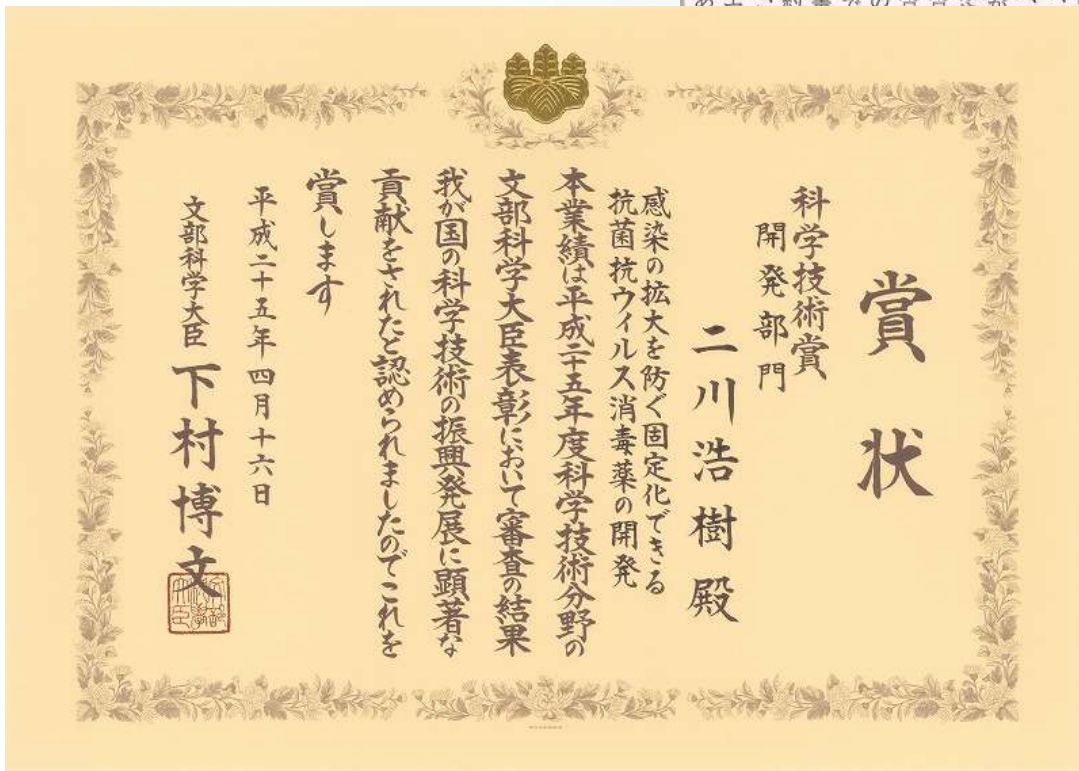 賞状
科学技術賞
開発部門
二川浩樹殿
感染の拡大を防ぐ固定化できる
抗菌抗ウイルス消毒薬の開発
本業績は平成二十五年度科学技術分野の
文部科学大臣表彰において審査の結果
我が国の科学技術の振興発展に顕著な
貢献をされたと認められましたのでこれを
賞します
平成二十五年四月十六日
文部科学大臣 下村博文